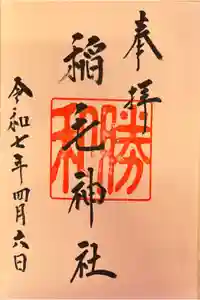 奉拝
稲毛神社
勝和
令和七年四月六日